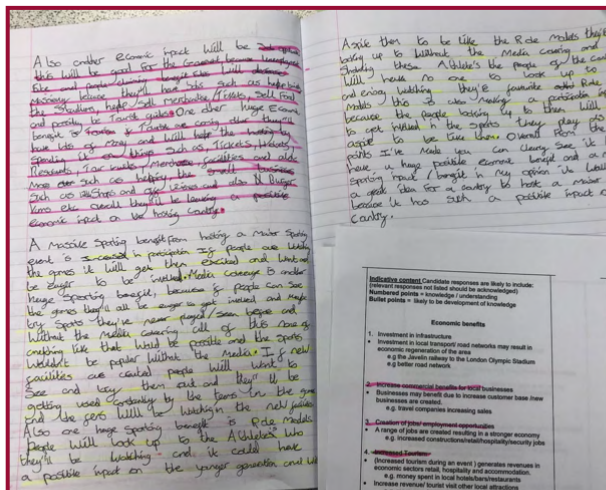 Also another Economic inpact will be
this will be good for the Goverment because unemployed
have and people
Massivley because they'll have Jobs such as helping
the Stadium help/sell merchandise/Tickets, Sell Food
and possibly be Tourist guides. One other huge Economic
benefit is Tourism
have lots of Money and will help the
Spending it on things such as, Tickets, Hotels,
facilities and alot
More such as helping the small business
Such as
overall they'll be leaving a positive
economic inpact on the hosting Country.
A massive Sporting benefit from hosting a Major Sporting
event is Increased in participation if people are watching
the games it will get them excited and want and
be eager to be involved. Media coverage is another
huge Sporting benefit, because if people can see
the games they'll all be eager to get involved and maybe
try Sports they've never played/seen before and
Without the Media covering all of this none of
anything like that would be possible and the Sports
Wouldn't be popular Without the Media. If new
facilities are created people will want to
See and try them out and they'll be
getting used constantly by the teams in the games
and the fans will be watching in the new facilities
Also one huge Sporting benefit is Role Models
People will look up to the Athletes who
they'll be watching and it could have
a positive inpact on the younger generation and will
Aspire them to be like the Role Models they're
looking up to Without the Media covering and
these Athletes the people of the
Will have no one to look up so
and enjoy watching they're favourite Role
Models this is also making a
because the people looking up to them will
to get involved in the sports they play
aspire to be like them. Overall from the
points I've made you can clearly See it
have a huge positive economic benefit and a
Sporting inpact/benefit in my opinion its
a great idea for a country to host a major
because it has such a positive inpact
Country.
Indicative content Candidate responses are likely to include:
(relevant responses not listed should be acknowledged)
Numbered points = knowledge / understanding
Bullet points = likely to be development of knowledge
Economic benefits
1. Investment in infrastructure
• Investment in local transport/ road networks may result in
economic regeneration of the area
e.g the Javelin railway to the London Olympic Stadium
e.g better road network
2. Increase commercial benefits for local businesses
• Businesses may benefit due to increase customer base new
businesses are created.
e.g. travel companies increasing sales
3. Creation of jobs/ employment opportunities
• A range of jobs are created resulting in a stronger economy
e.g. increased constructions/retail/hospitality/security jobs
4. Increased Tourism
• (Increased tourism during an event ) generates revenues in
economic sectors retail, hospitality and accommodation.
e.g. money spent in local hotels/bars/restaurants
• Increase revenue/ tourist visit other local attractions